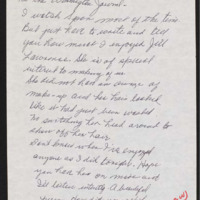 to the
I watch Spain most of the time
But just have to write and tell
you how much I enjoyed Jill
She is of special
interest to making of us
She did not had an ounce of
make-up and her hair looked
like it had just been washed
no switching her head around to
show off her hair
Don't know when I've enjoyed
anyone as I did tonight. Hope
you have her on more and
I'll listen intently A beautiful